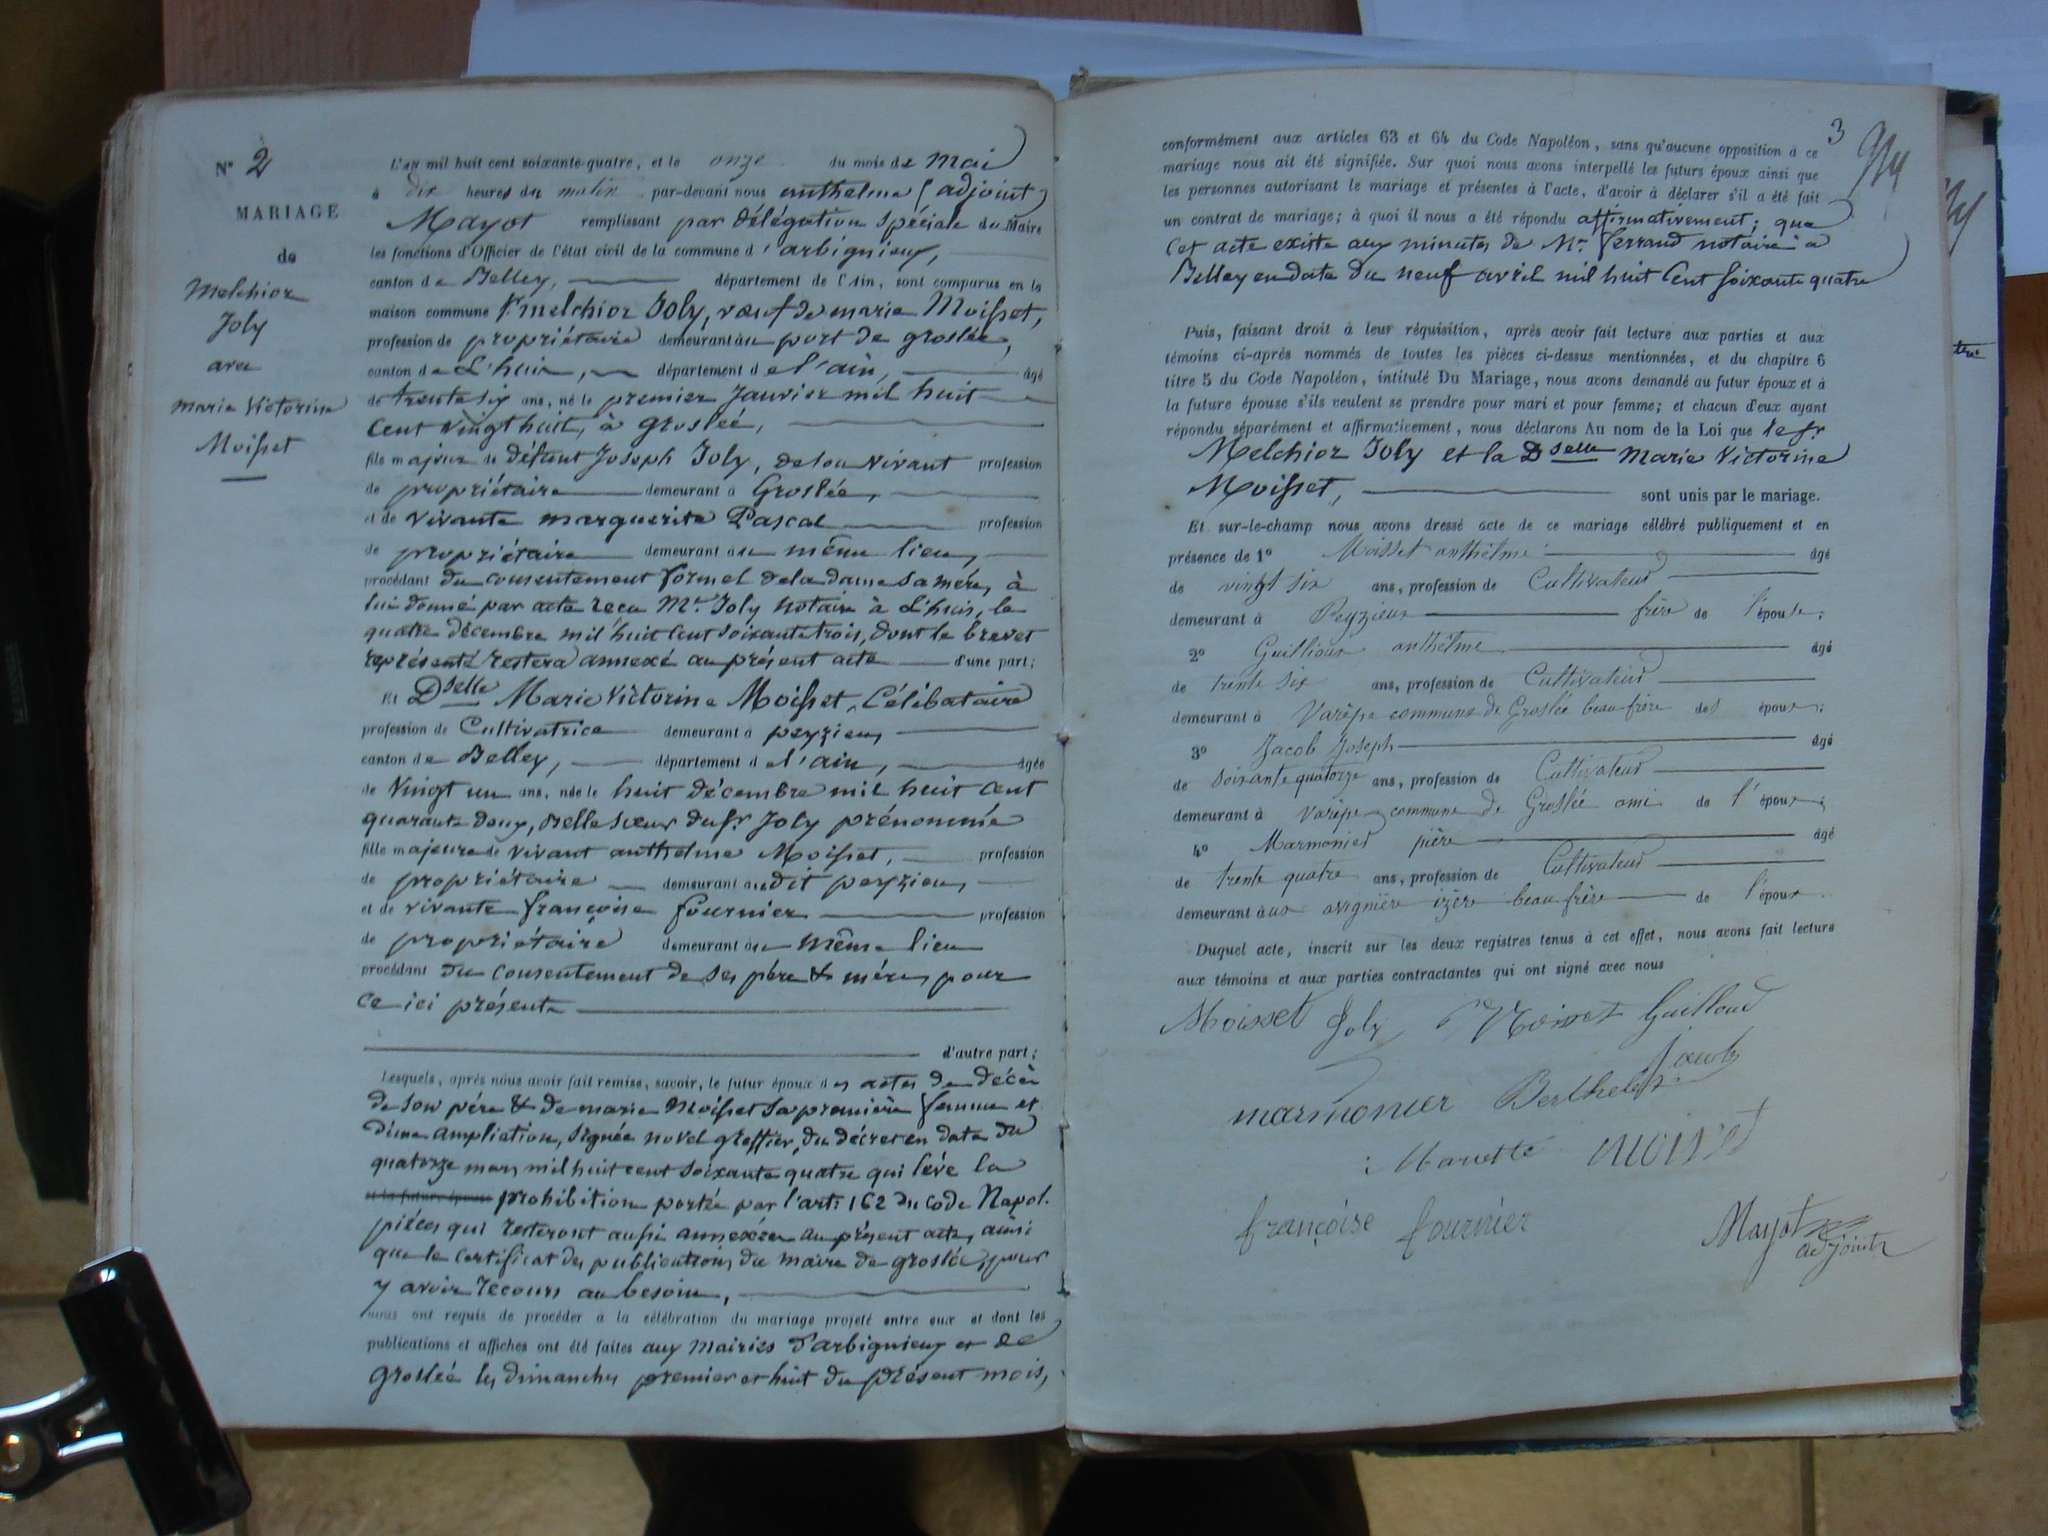 N° 2
MARIAGE
de
Melchior
Joly
avec
Marie Victorine
Moisset
L'an mil huit cent soixante-quatre, et le onze du mois de mai
à dix heures du matin par-devant nous anthelme (adjoint)
Mayot remplissant par délégation spéciale du Maire
les fonctions d'Officier de l'état civil de la commune d'arbignieux,
canton de Belley, département de l'Ain, sont comparus en la
maison commune Sr melchior Joly, veuf de marie Moisset,
profession de propriétaire demeurant au port de groslée,
canton de L'huis, département de l'ain, âgé
de trente six ans, né le premier Janvier mil huit
Cent vingt huit, à groslée,
fils majeur de défunt Joseph Joly, de son vivant profession
de propriétaire demeurant à Groslée,
et de vivante marguerite Pascal profession
de propriétaire demeurant au même lieu,
procédant du consentement formel de la dame sa mére, à
lui donné par acte reçu Me Joly notaire à L'huis, le
quatre décembre mil huit Cent soixante trois, dont le brevet
représenté restera annexé au présent acte d'une part;
Et Dselle Marie Victorine Moisset, Célibataire
profession de Cultivatrice demeurant à peyzieu,
canton de Belley, département de l'ain, âgée
de Vingt un ans, née le huit décembre mil huit Cent
quarante deux, Belle sœur du sr Joly prénommé
fille majeure de vivant anthelme Moisset, profession
de propriétaire demeurant audit peyzieu,
et de vivante françoise fournier profession
de propriétaire demeurant au même lieu
procédant du consentement de ses pére & mére, pour
ce ici présents
d'autre part;
Lesquels, après nous avoir fait remise, savoir, le futur époux des actes de décès
de son pére & de marie Moisset sa première femme et
d'une ampliation, signée novel greffier, du décret en date du
quatorze mars mil huit cent soixante quatre qui lève la
et la future épouse prohibition portée par l'art: 162 du code Napol.
piéces qui resteront aussi annexées au présent acte, ainsi
que le certificat des publications du maire de groslée, pour
y avoir recours au besoin,
nous ont requis de procéder à la célébration du mariage projeté entre eux et dont les
publications et affiches ont été faites aux mairies d'arbignieux et de
groslée les dimanches premier et huit du présent mois,
3
conformément aux articles 63 et 64 du Code Napoléon, sans qu'aucune opposition à ce
mariage nous ait été signifiée. Sur quoi nous avons interpellé les futurs époux ainsi que
les personnes autorisant le mariage et présentes à l'acte, d'avoir à déclarer s'il a été fait
un contrat de mariage; à quoi il nous a été répondu affirmativement; que
Cet acte existe aux minutes de Me ferrand notaire à
Belley en date du neuf avril mil huit Cent soixante quatre
Puis, faisant droit à leur réquisition, après avoir fait lecture aux parties et aux
témoins ci-après nommés de toutes les pièces ci-dessus mentionnées, et du chapitre 6
titre 5 du Code Napoléon, intitulé Du Mariage, nous avons demandé au futur époux et à
la future épouse s'ils veulent se prendre pour mari et pour femme; et chacun d'eux ayant
répondu séparément et affirmativement, nous déclarons Au nom de la Loi que le sr
Melchior Joly et la Dselle Marie Victorine
Moisset, sont unis par le mariage.
Et sur-le-champ nous avons dressé acte de ce mariage célébré publiquement et en
présence de 1° Moisset anthelme âgé
de vingt six ans, profession de Cultivateur
demeurant à Peyzieux frère de l'épouse;
2° Guilloud anthelme âgé
de trente six ans, profession de Cultivateur
demeurant à Varèpe commune de Groslée beau frère de l époux;
3° Jacob Joseph âgé
de soixante quatorze ans, profession de Cultivateur
demeurant à Varèpe commune de Groslée ami de l'époux;
4° Marmonier pière âgé
de trente quatre ans, profession de Cultivateur
demeurant aux avignière izère beau frère de l'époux
Duquel acte, inscrit sur les deux registres tenus à cet effet, nous avons fait lecture
aux témoins et aux parties contractantes qui ont signé avec nous
Moisset Joly Moisset Guilloud
Jacob
marmonier Berthelet
Mariette moisset
françoise fournier
Mayot
adjoint